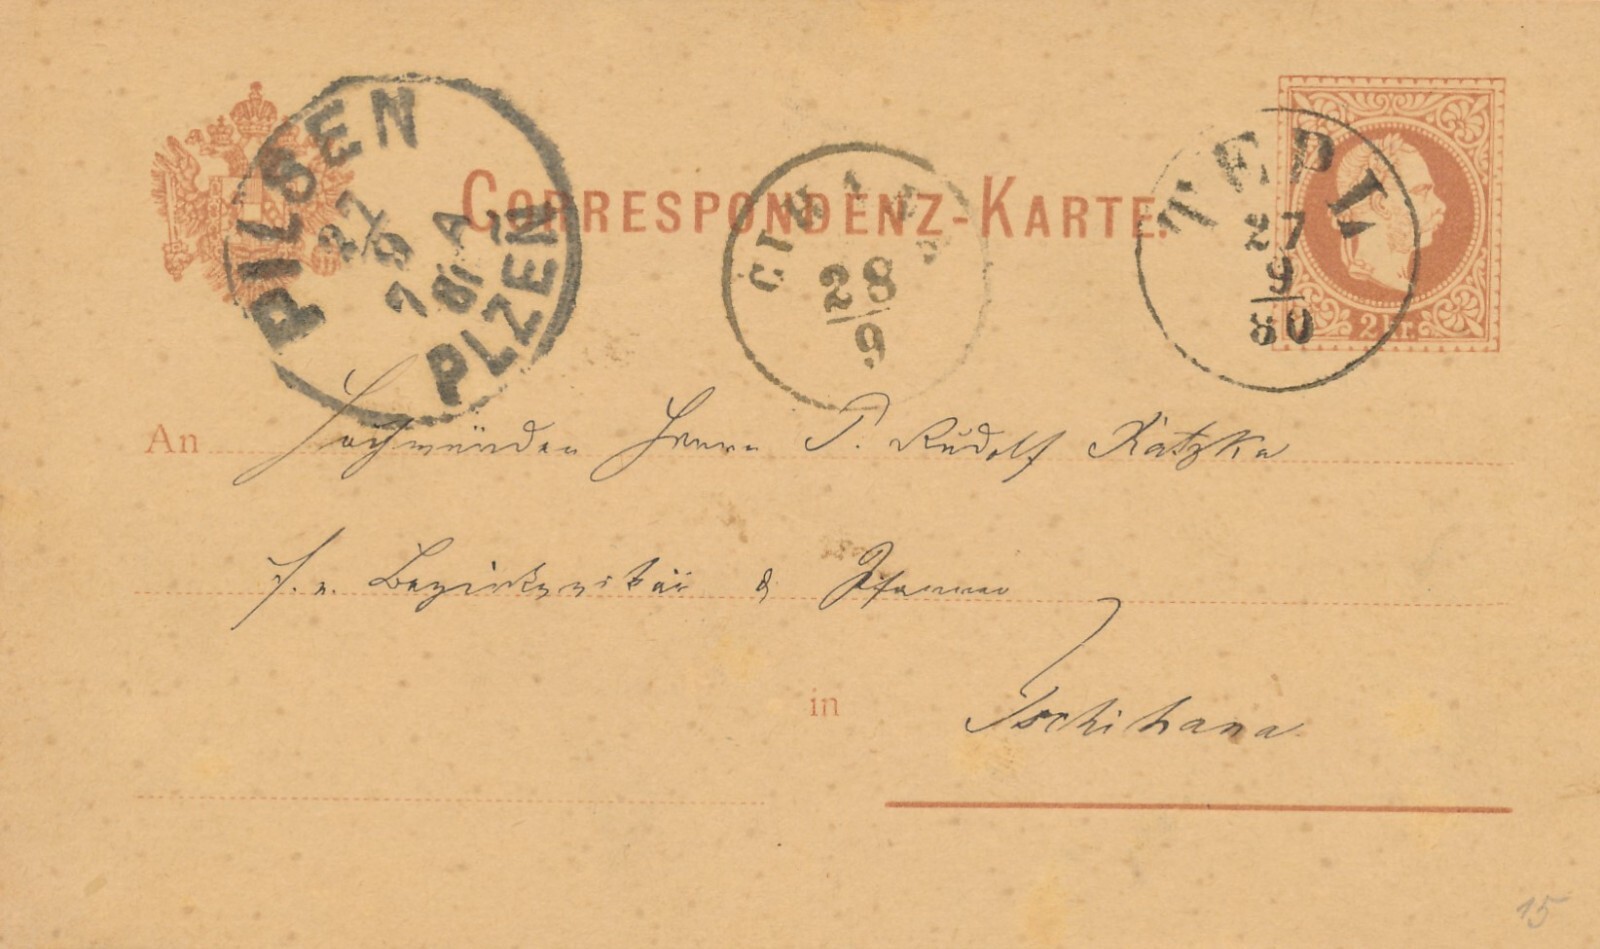 PILSEN
27
9
7 A
81
PLZEN
CORRESPONDENZ-KARTE.
28
9
TEPL
27
9
80
2 kr.
An Hochwürden Herrn P. Rudolf Katzka
f. e. Bezirksvikär & Pfarrer
in Tschihana
15